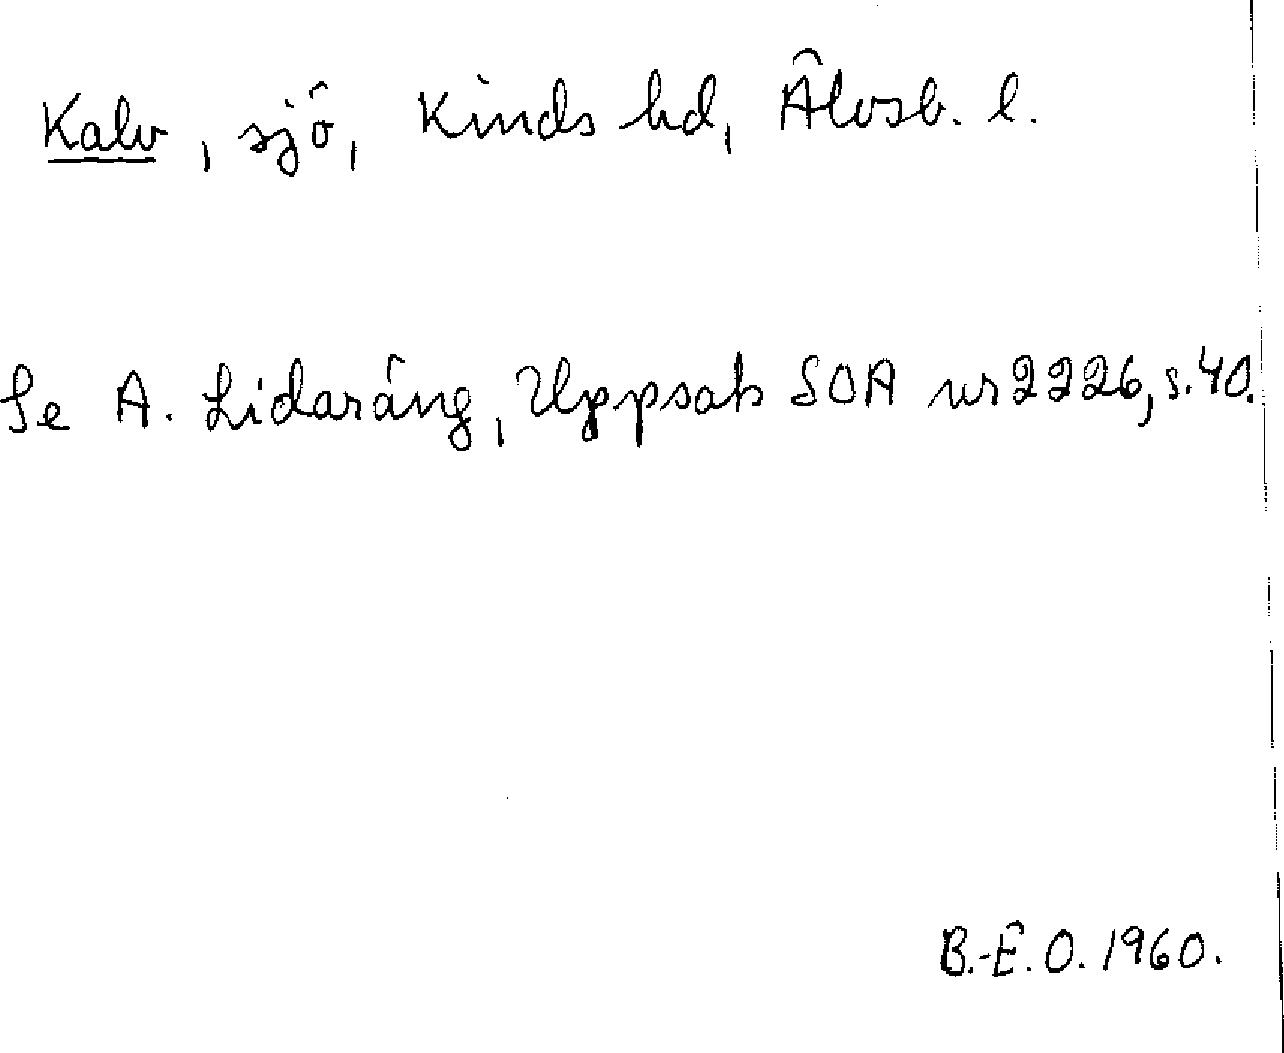 Kalv, sjö, Kinds hd, Älvsb. l.
Se A. Lidaräng, Uppsats SOA nr 2226, s. 40.
B.-E. O. 1960.